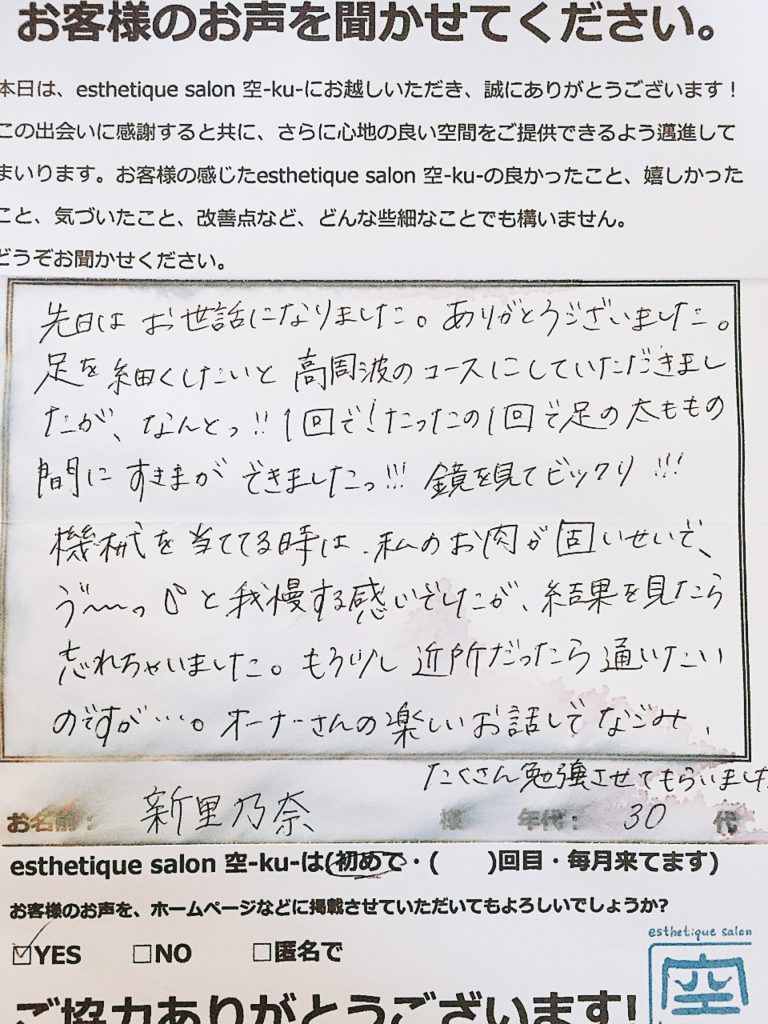 お客様のお声を聞かせてください。
本日は、esthetique salon 空-ku-にお越しいただき、誠にありがとうございます！
この出会いに感謝すると共に、さらに心地の良い空間をご提供できるよう邁進して
まいります。お客様の感じたesthetique salon 空-ku-の良かったこと、嬉しかった
こと、気づいたこと、改善点など、どんな些細なことでも構いません。
どうぞお聞かせください。
先日は お世話になりました。ありがとうございました。
足を細くしたいと 高周波のコースにしていただきまし
たが、なんとっ!! 1回で！たったの1回で足の太ももの
間に すきまが できましたっ!!! 鏡を見てビックリ !!!
機械を当ててる時は、私のお肉が固いせいで、
ゔ〜〜っ と我慢する感じでしたが、結果を見たら
忘れちゃいました。もう少し 近所だったら 通いたい
のですが・・・。オーナーさんの楽しいお話しで なごみ、
たくさん勉強させてもらいました
お名前： 新里乃奈 様 年代： 30 代
esthetique salon 空-ku-は(初めて・( )回目・毎月来てます)
お客様のお声を、ホームページなどに掲載させていただいてもよろしいでしょうか?
☑YES □NO □匿名で
esthetique salon
空
ご協力ありがとうございます!